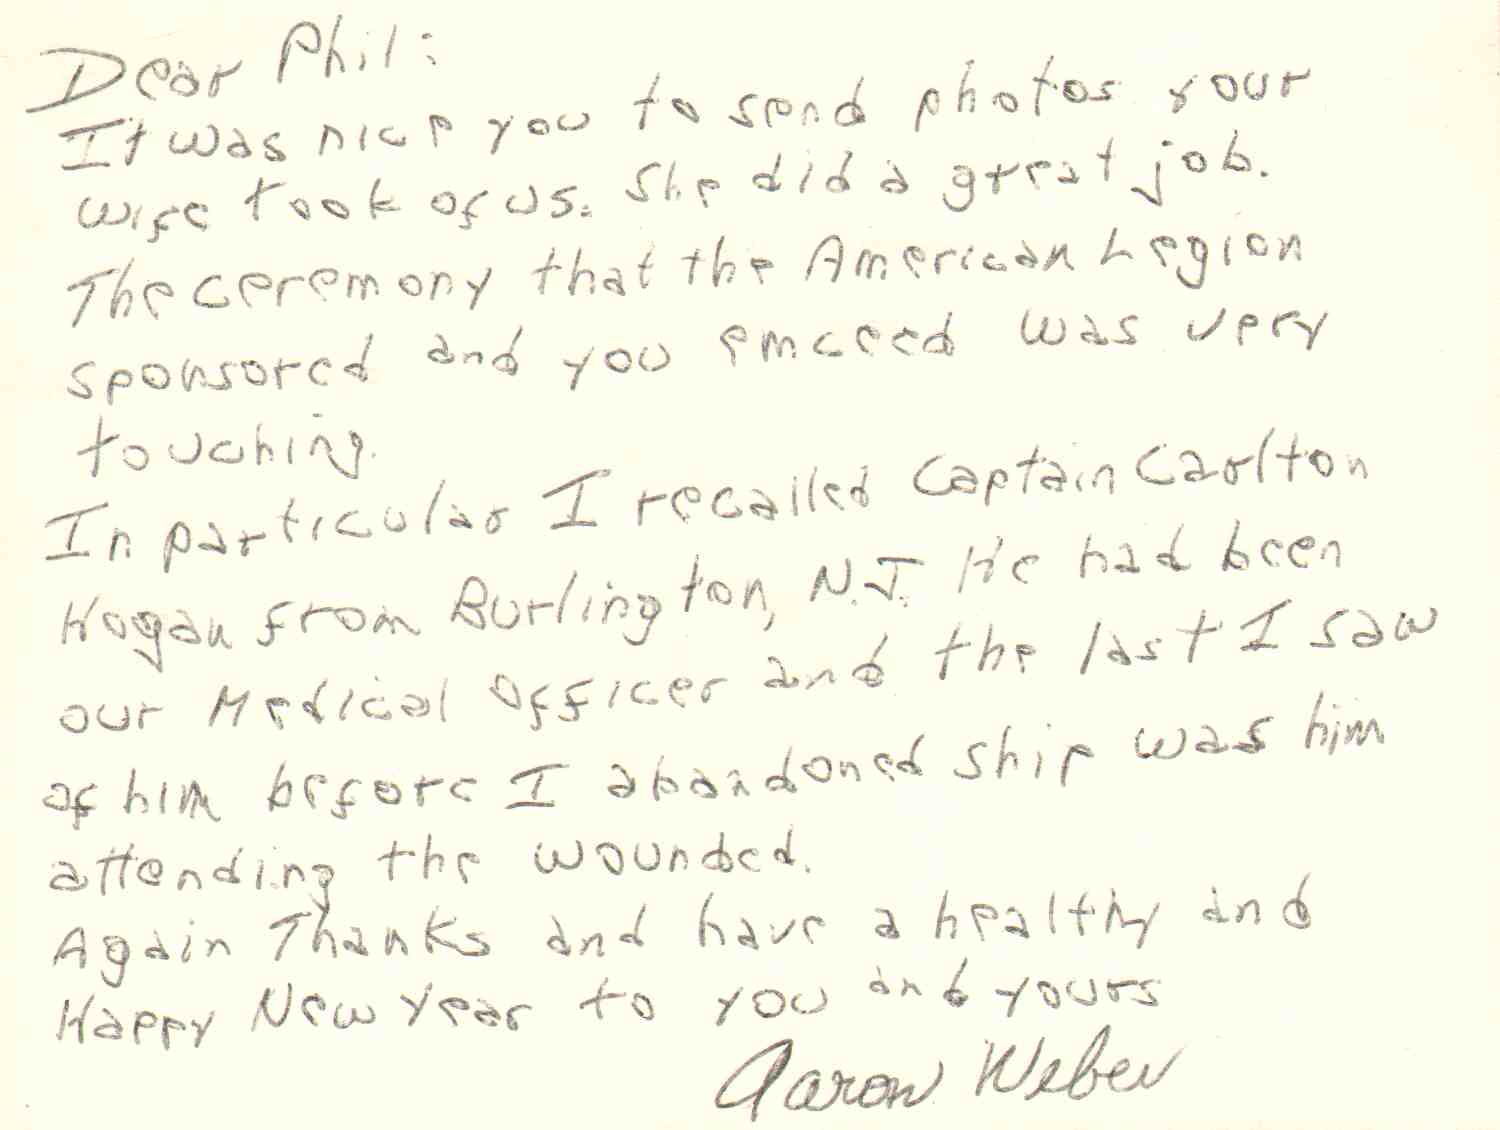 Dear Phil:
It was nice you to send photos your
wife took of us. She did a great job.
The ceremony that the American Legion
sponsored and you emceed was very
touching.
In particular I recalled Captain Carlton
Hogan from Burlington, N.J. He had been
our Medical Officer and the last I saw
of him before I abandoned ship was him
attending the wounded.
Again Thanks and have a healthy and
Happy New Year to you and yours
Aaron Weber